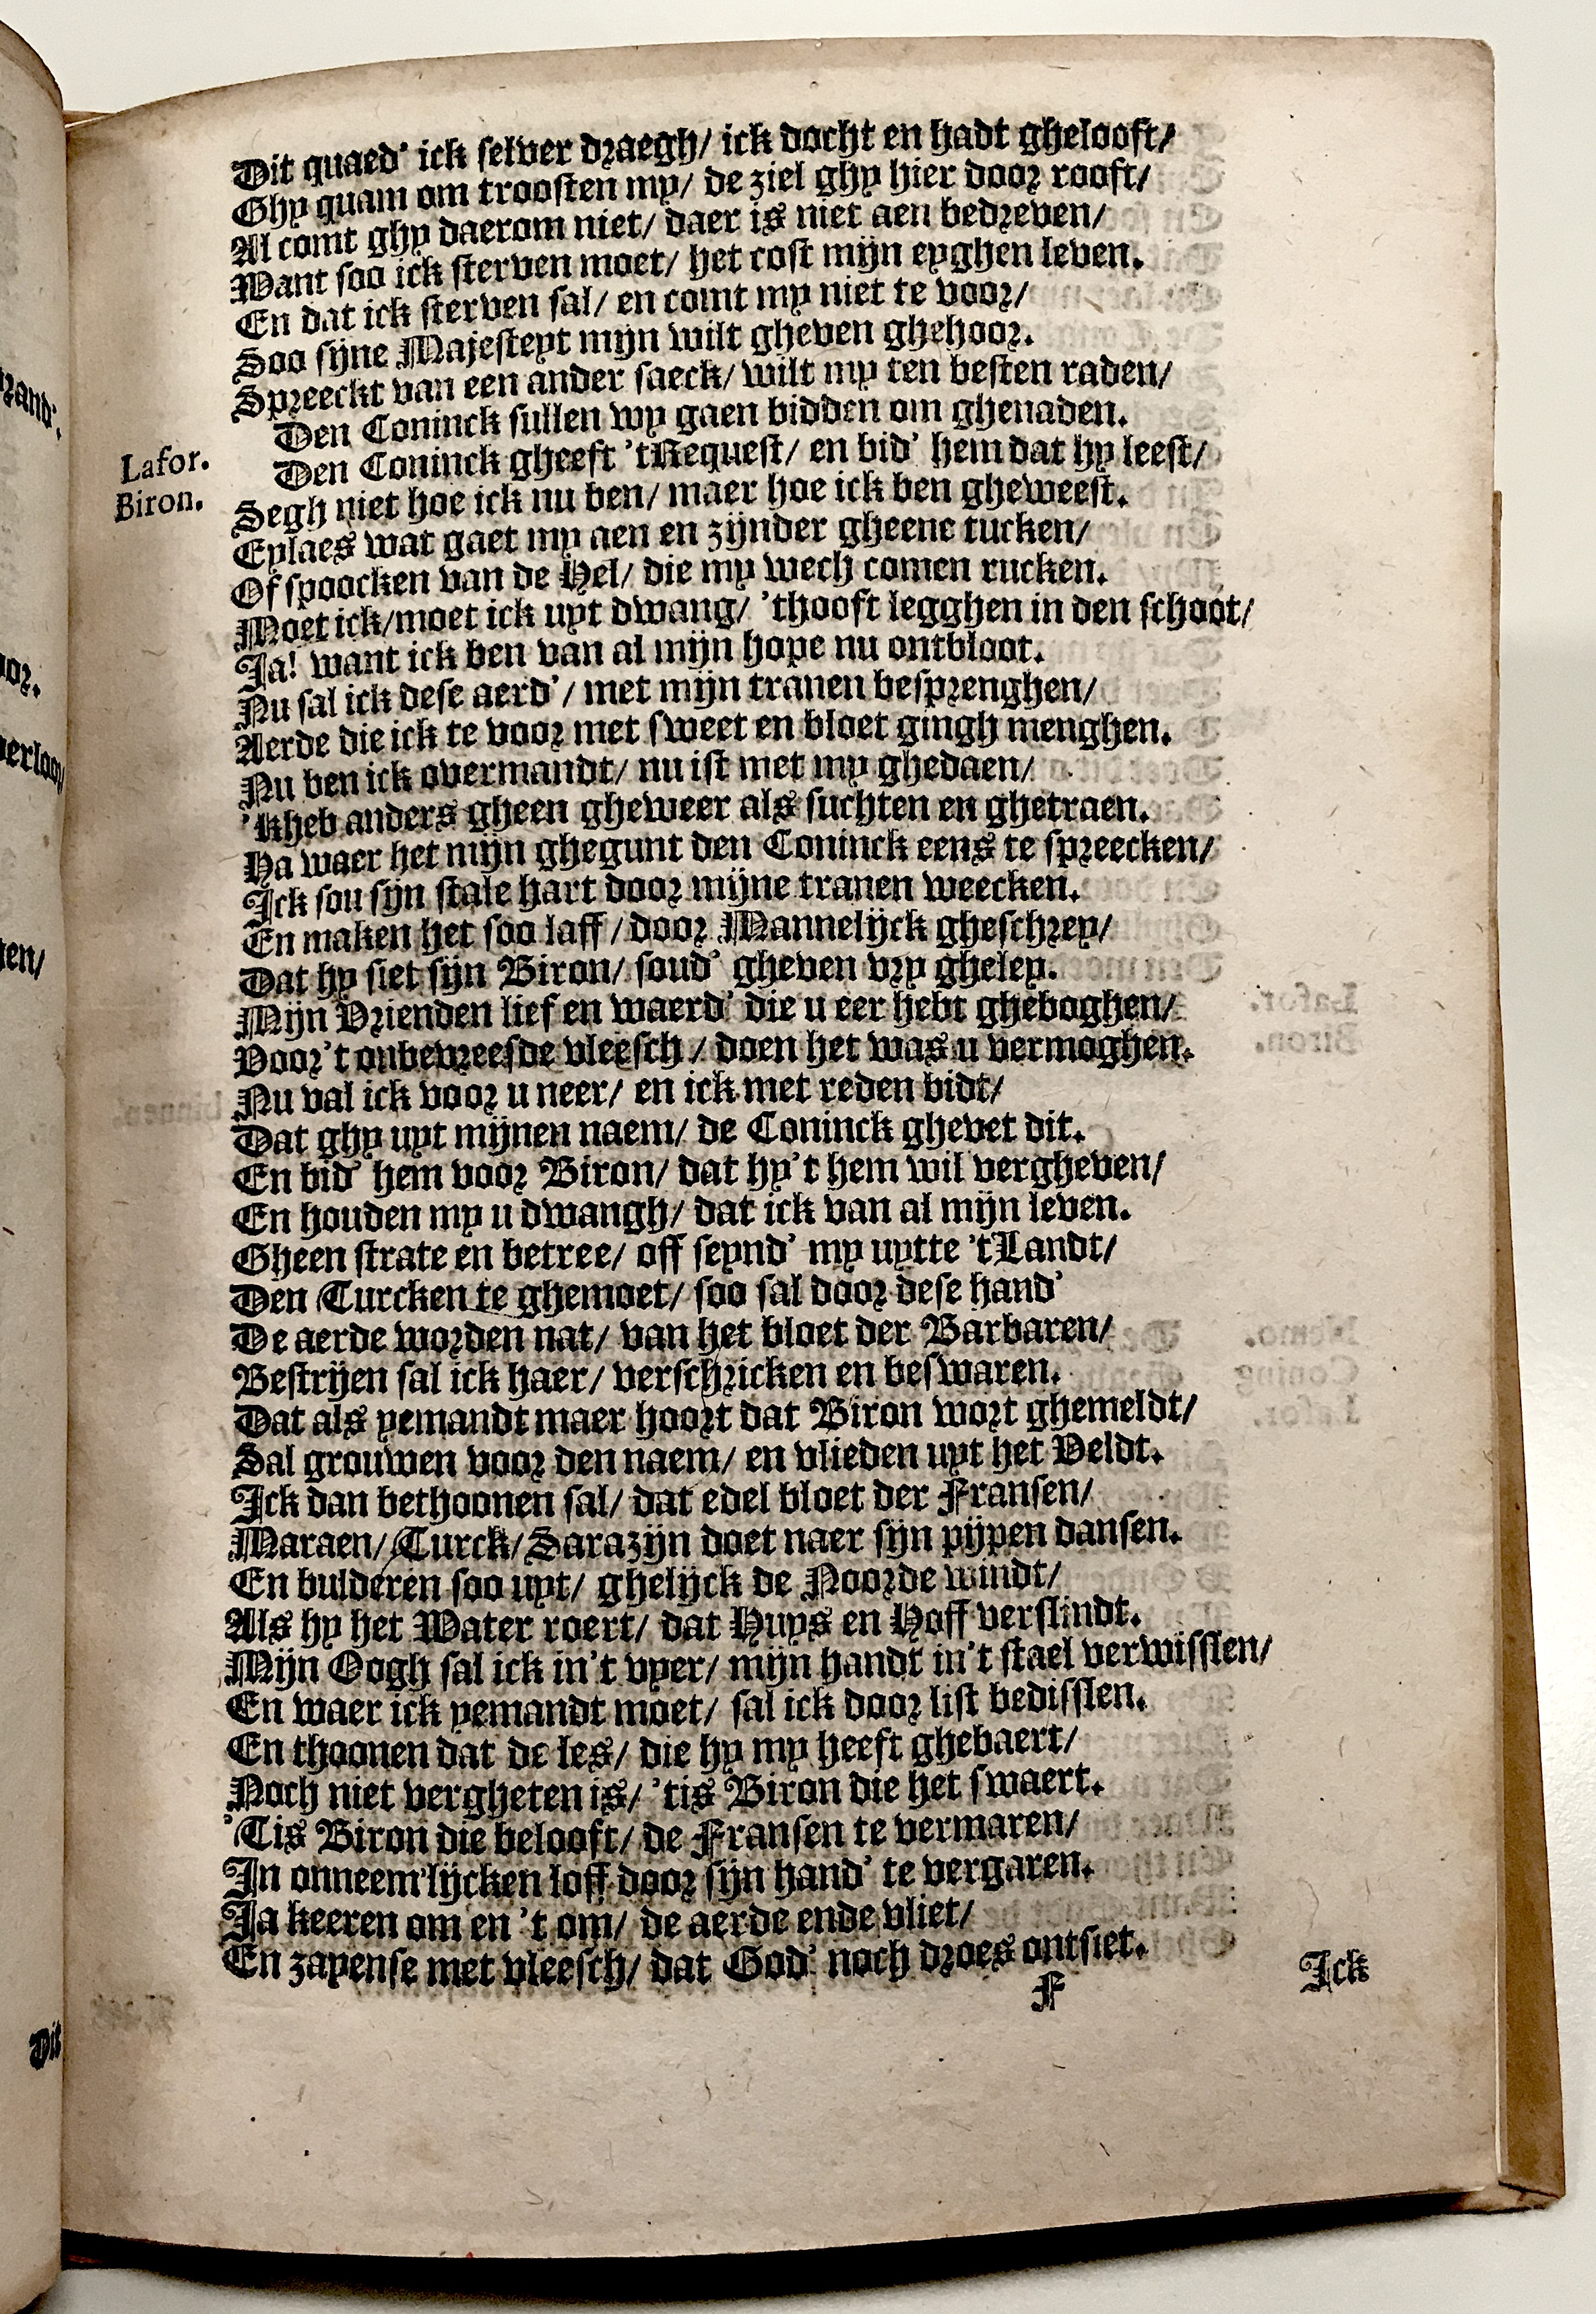 Dit quaed' ick selver draegh/ ick docht en hadt ghelooft/
Ghy quam om troosten my/ de ziel ghy hier door rooft/
Al comt ghy daerom niet/ daer is niet aen bedreven/
Want soo ick sterven moet/ het cost mijn eyghen leven.
En dat ick sterven sal/ en comt my niet te voor/
Soo sijne Majesteyt mijn wilt gheven ghehoor.
Spreeckt van een ander saeck/ wilt my ten besten raden/
Lafor. Den Coninck sullen wy gaen bidden om ghenaden.
Biron. Den Coninck gheeft 't Request/ en bid' hem dat hy leest/
Segh niet hoe ick nu ben/ maer hoe ick ben gheweest.
Eylaes wat gaet my aen en zijnder gheene tucken/
Of spoocken van de Hel/ die my wech comen rucken.
Moet ick/moet ick uyt dwang/ 'thooft legghen in den schoot/
Ja! want ick ben van al mijn hope nu ontbloot.
Nu sal ick dese aerd'/ met mijn tranen besprenghen/
Aerde die ick te voor met sweet en bloet gingh menghen.
Nu ben ick overmandt/ nu ist met my ghedaen/
'Kheb anders gheen gheweer als suchten en ghetraen.
Ha waer het mijn ghegunt den Coninck eens te spreecken/
Ick sou sijn stale hart door mijne tranen weecken.
En maken het soo laff/ door Mannelijck gheschrey/
Dat hy siet sijn Biron/ soud' gheven vry gheley.
Mijn Vrienden lief en waerd' die u eer hebt gheboghen/
Voor't onbevreesde vleesch/ doen het was u vermoghen.
Nu val ick voor u neer/ en ick met reden bidt/
Dat ghy uyt mijnen naem/ de Coninck ghevet dit.
En bid' hem voor Biron/ dat hy't hem wil vergheven/
En houden my u dwangh/ dat ick van al mijn leven.
Gheen strate en betree/ off seynd' my uytte 't Landt/
Den Turcken te ghemoet/ soo sal door dese hand'
De aerde worden nat/ van het bloet der Barbaren/
Bestrijen sal ick haer/ verschricken en beswaren.
Dat als yemandt maer hoort dat Biron wort ghemeldt/
Sal grouwen voor den naem/ en vlieden uyt het Veldt.
Ick dan bethoonen sal/ dat edel bloet der Fransen/
Maraen/ Turck/ Sarazijn doet naer sijn pijpen dansen.
En bulderen soo uyt/ ghelijck de Noorde windt/
Als hy het Water roert/ dat Huys en Hoff verslindt.
Mijn Oogh sal ick in't vyer/ mijn handt in't stael verwisslen/
En waer ick yemandt moet/ sal ick door list bedisslen.
En thoonen dat de les/ die hy my heeft ghebaert/
Noch niet vergheten is/ 'tis Biron die het swaert.
'Tis Biron die belooft/ de Fransen te vermaren/
In onneem'lijcken loff door sijn hand' te vergaren.
Ja keeren om en 't om/ de aerde ende vliet/
En zapense met vleesch/ dat God' noch droes ontsiet.
F
Ick